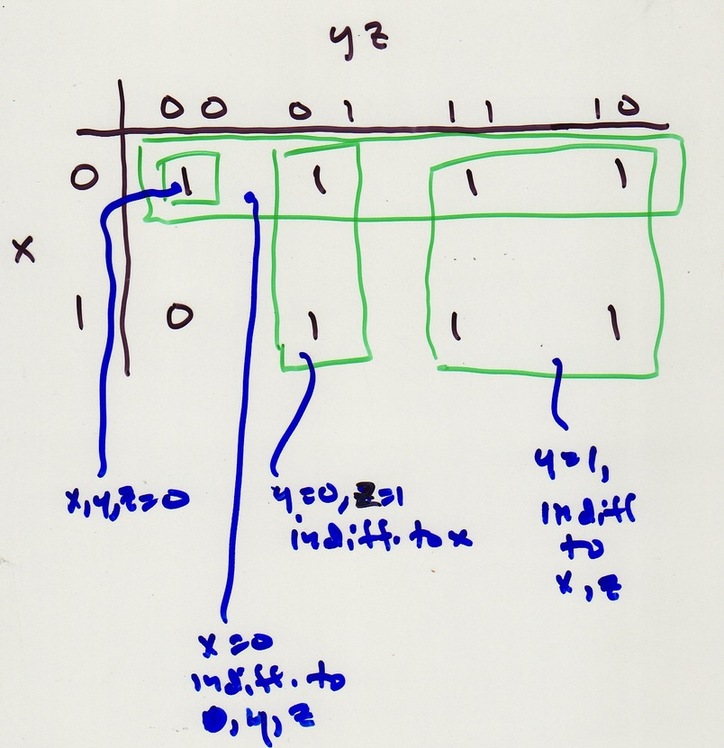 yz
00 01 11 10
0 1 1 1 1
x
1 0 1 1 1
x,y,z=0
y=0, z=1
indiff. to x
y=1,
indiff
to
x, z
x=0
indiff. to
y, z